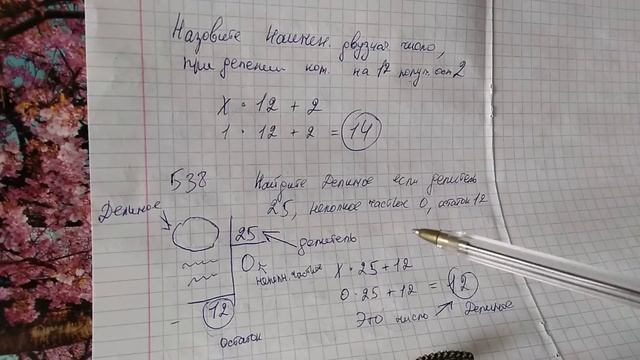 Назовите Наимен. двузнач число,
при делении кот. на 12 получ. ост 2
X · 12 + 2
1 · 12 + 2 = 14
538 Найдите Делимое если делитель
25, неполное частное 0, остаток 12
Делимое
25
делитель
0
неполн. частное
12
остаток
X · 25 + 12
0 · 25 + 12 = 12
Это число Делимое